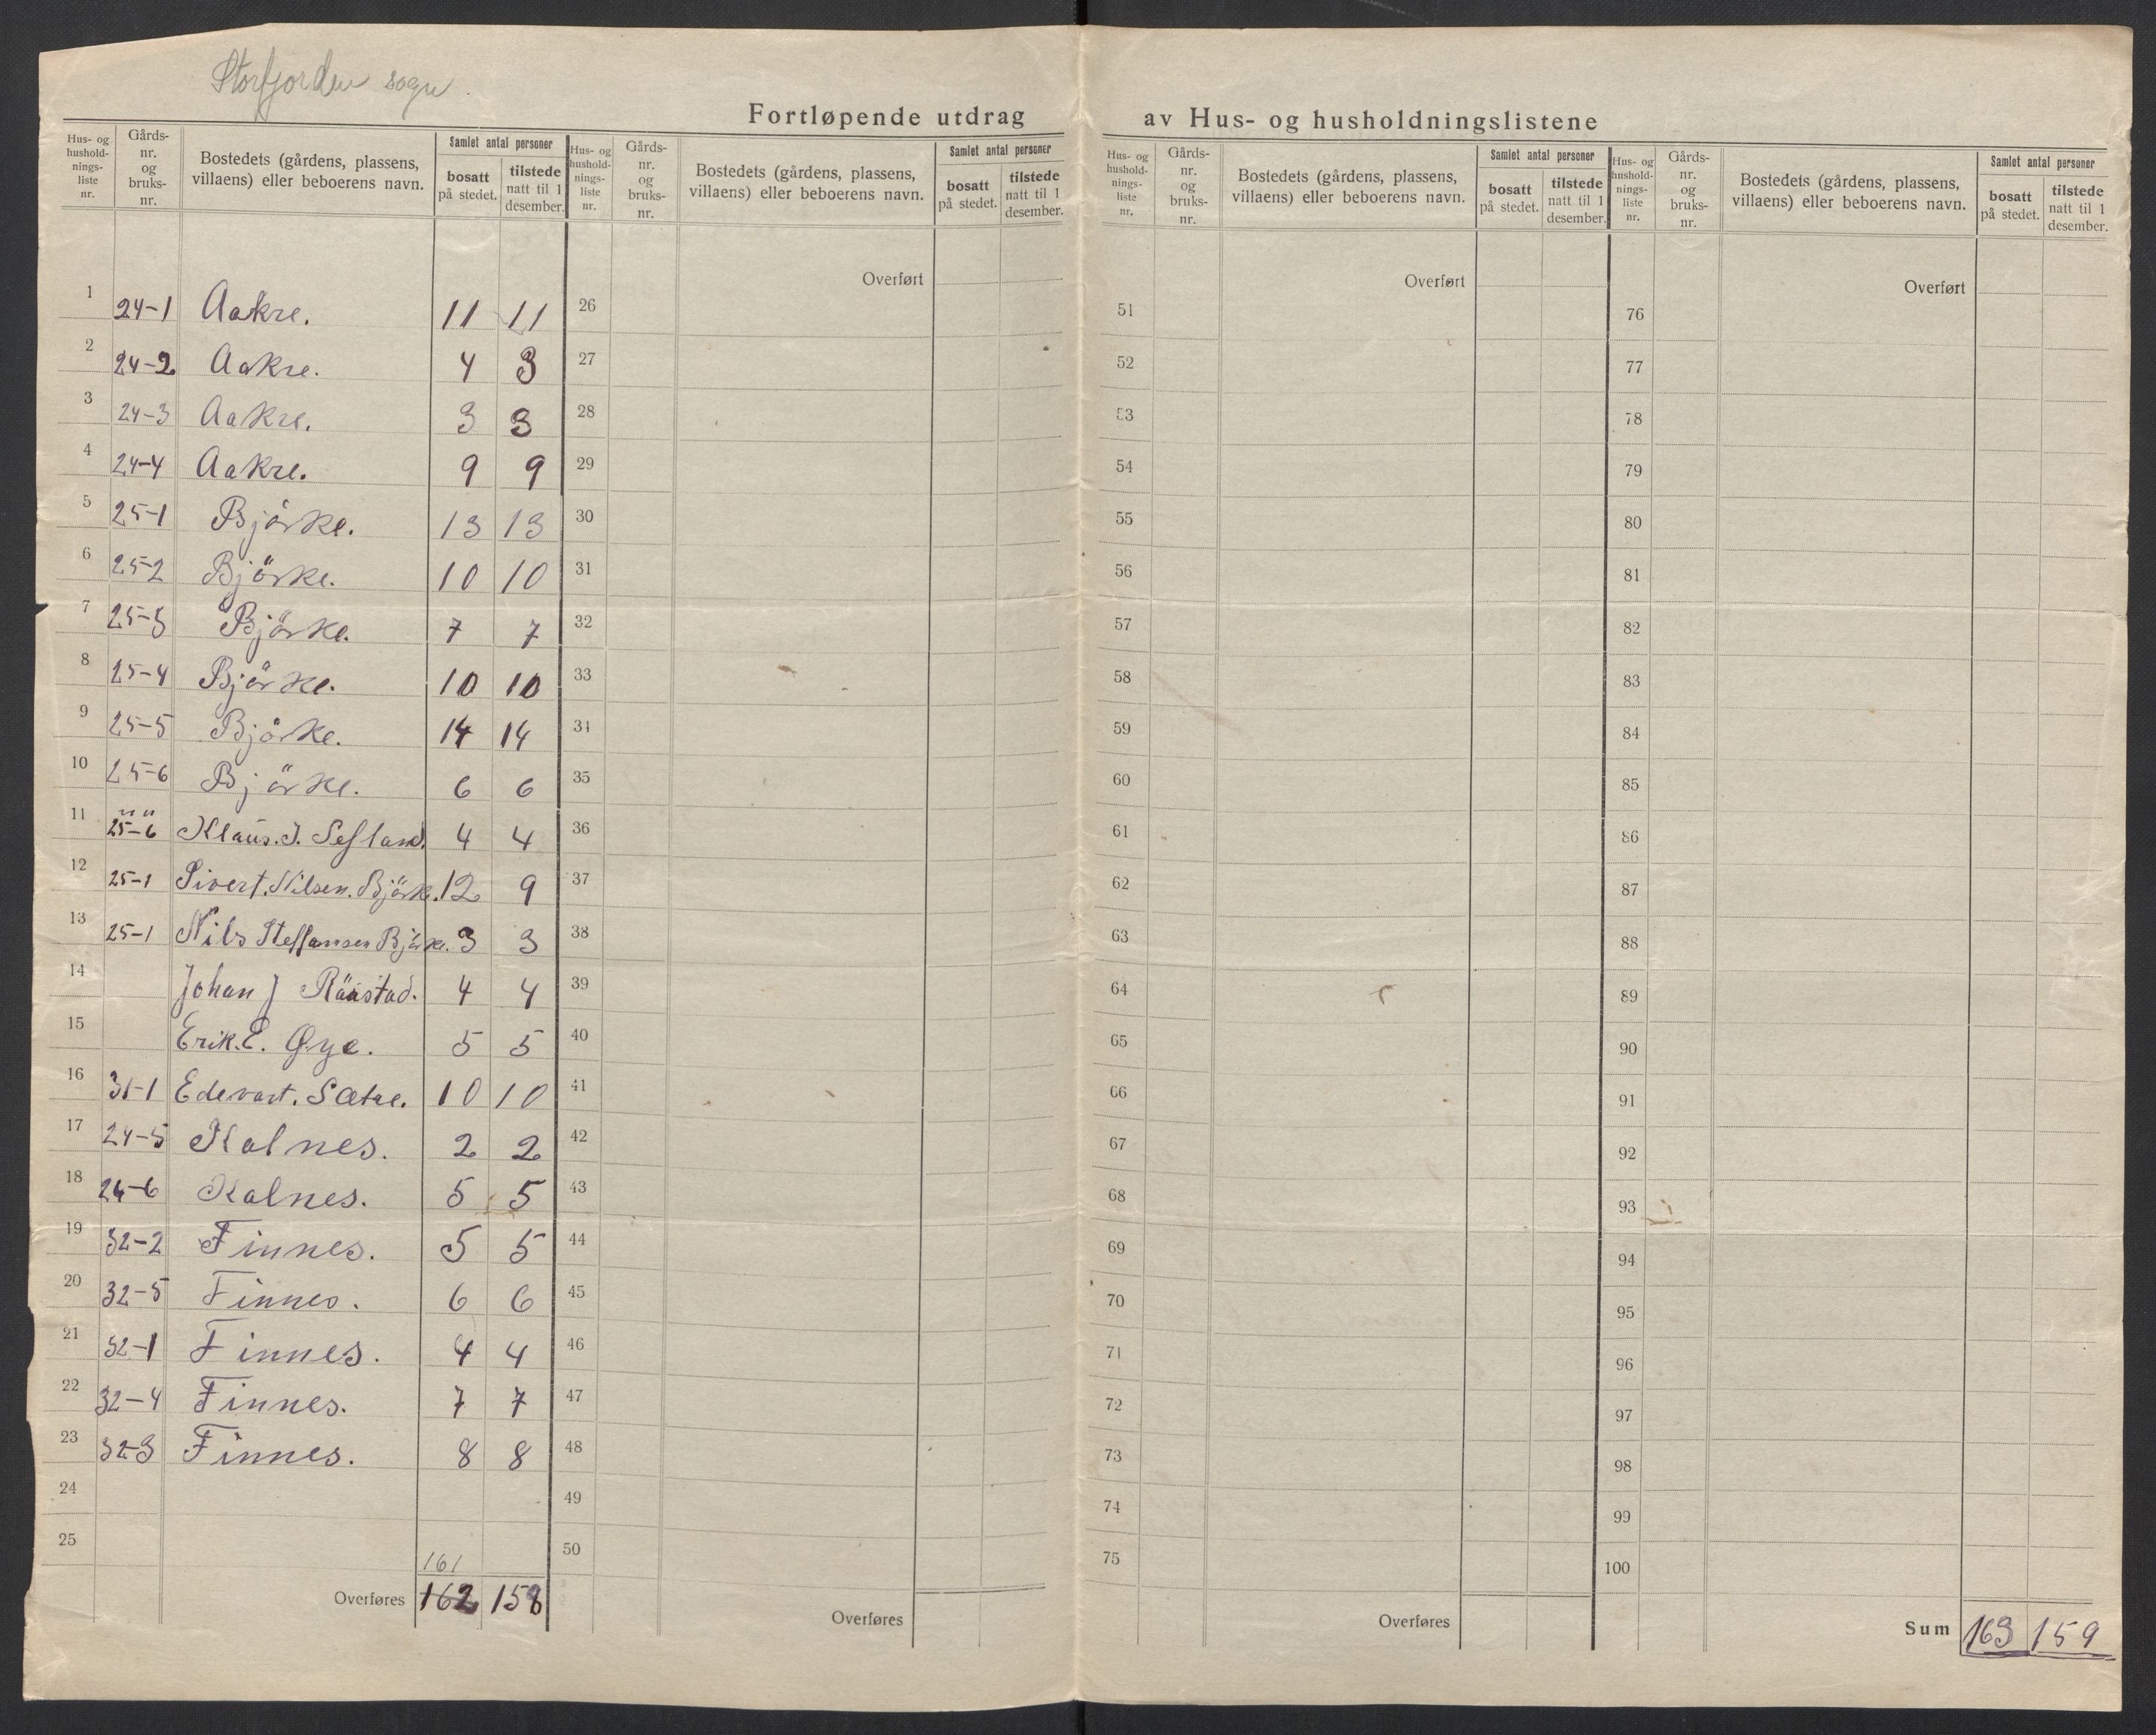 Storfjorden sogn.
Fortløpende utdrag av Hus- og husholdningslistene
Hus- og husholdnings-liste nr. | Gårds-nr. og bruks-nr. | Bostedets (gårdens, plassens, villaens) eller beboerens navn. | Samlet antal personer | bosatt på stedet. | tilstede natt til 1 desember.
1 24-1 Aakre. 11 11
2 24-2 Aakre. 4 3
3 24-3 Aakre. 3 3
4 24-4 Aakre. 9 9
5 25-1 Björke. 13 13
6 25-2 Björke. 10 10
7 25-3 Björke. 7 7
8 25-4 Björke. 10 10
9 25-5 Björke. 14 14
10 25-6 Björke. 6 6
11 25-6 Klaus. J. Sefland. 4 4
12 25-1 Sivert. Nilsen. Björk. 12 9
13 25-1 Nils Steffansen Björke. 3 3
14 Johan J 4 4
15 Erik. E. Øye. 5 5
16 31-1 Edevart. Sætre. 10 10
17 24-5 Kalnes. 2 2
18 24-6 Kalnes. 5 5
19 32-2 Finnes. 5 5
20 32-5 Finnes. 6 6
21 32-1 Finnes. 4 4
22 32-4 Finnes. 7 7
23 32-3 Finnes. 8 8
24
25
161
Overføres 162 158
Hus- og husholdnings-liste nr. | Gårds-nr. og bruks-nr. | Bostedets (gårdens, plassens, villaens) eller beboerens navn. | Samlet antal personer | bosatt på stedet. | tilstede natt til 1 desember.
Overført
26
27
28
29
30
31
32
33
34
35
36
37
38
39
40
41
42
43
44
45
46
47
48
49
50
Overføres
Hus- og husholdnings-liste nr. | Gårds-nr. og bruks-nr. | Bostedets (gårdens, plassens, villaens) eller beboerens navn. | Samlet antal personer | bosatt på stedet. | tilstede natt til 1 desember.
Overført
51
52
53
54
55
56
57
58
59
60
61
62
63
64
65
66
67
68
69
70
71
72
73
74
75
Overføres
Hus- og husholdnings-liste nr. | Gårds-nr. og bruks-nr. | Bostedets (gårdens, plassens, villaens) eller beboerens navn. | Samlet antal personer | bosatt på stedet. | tilstede natt til 1 desember.
Overført
76
77
78
79
80
81
82
83
84
85
86
87
88
89
90
91
92
93
94
95
96
97
98
99
100
Sum 163 159